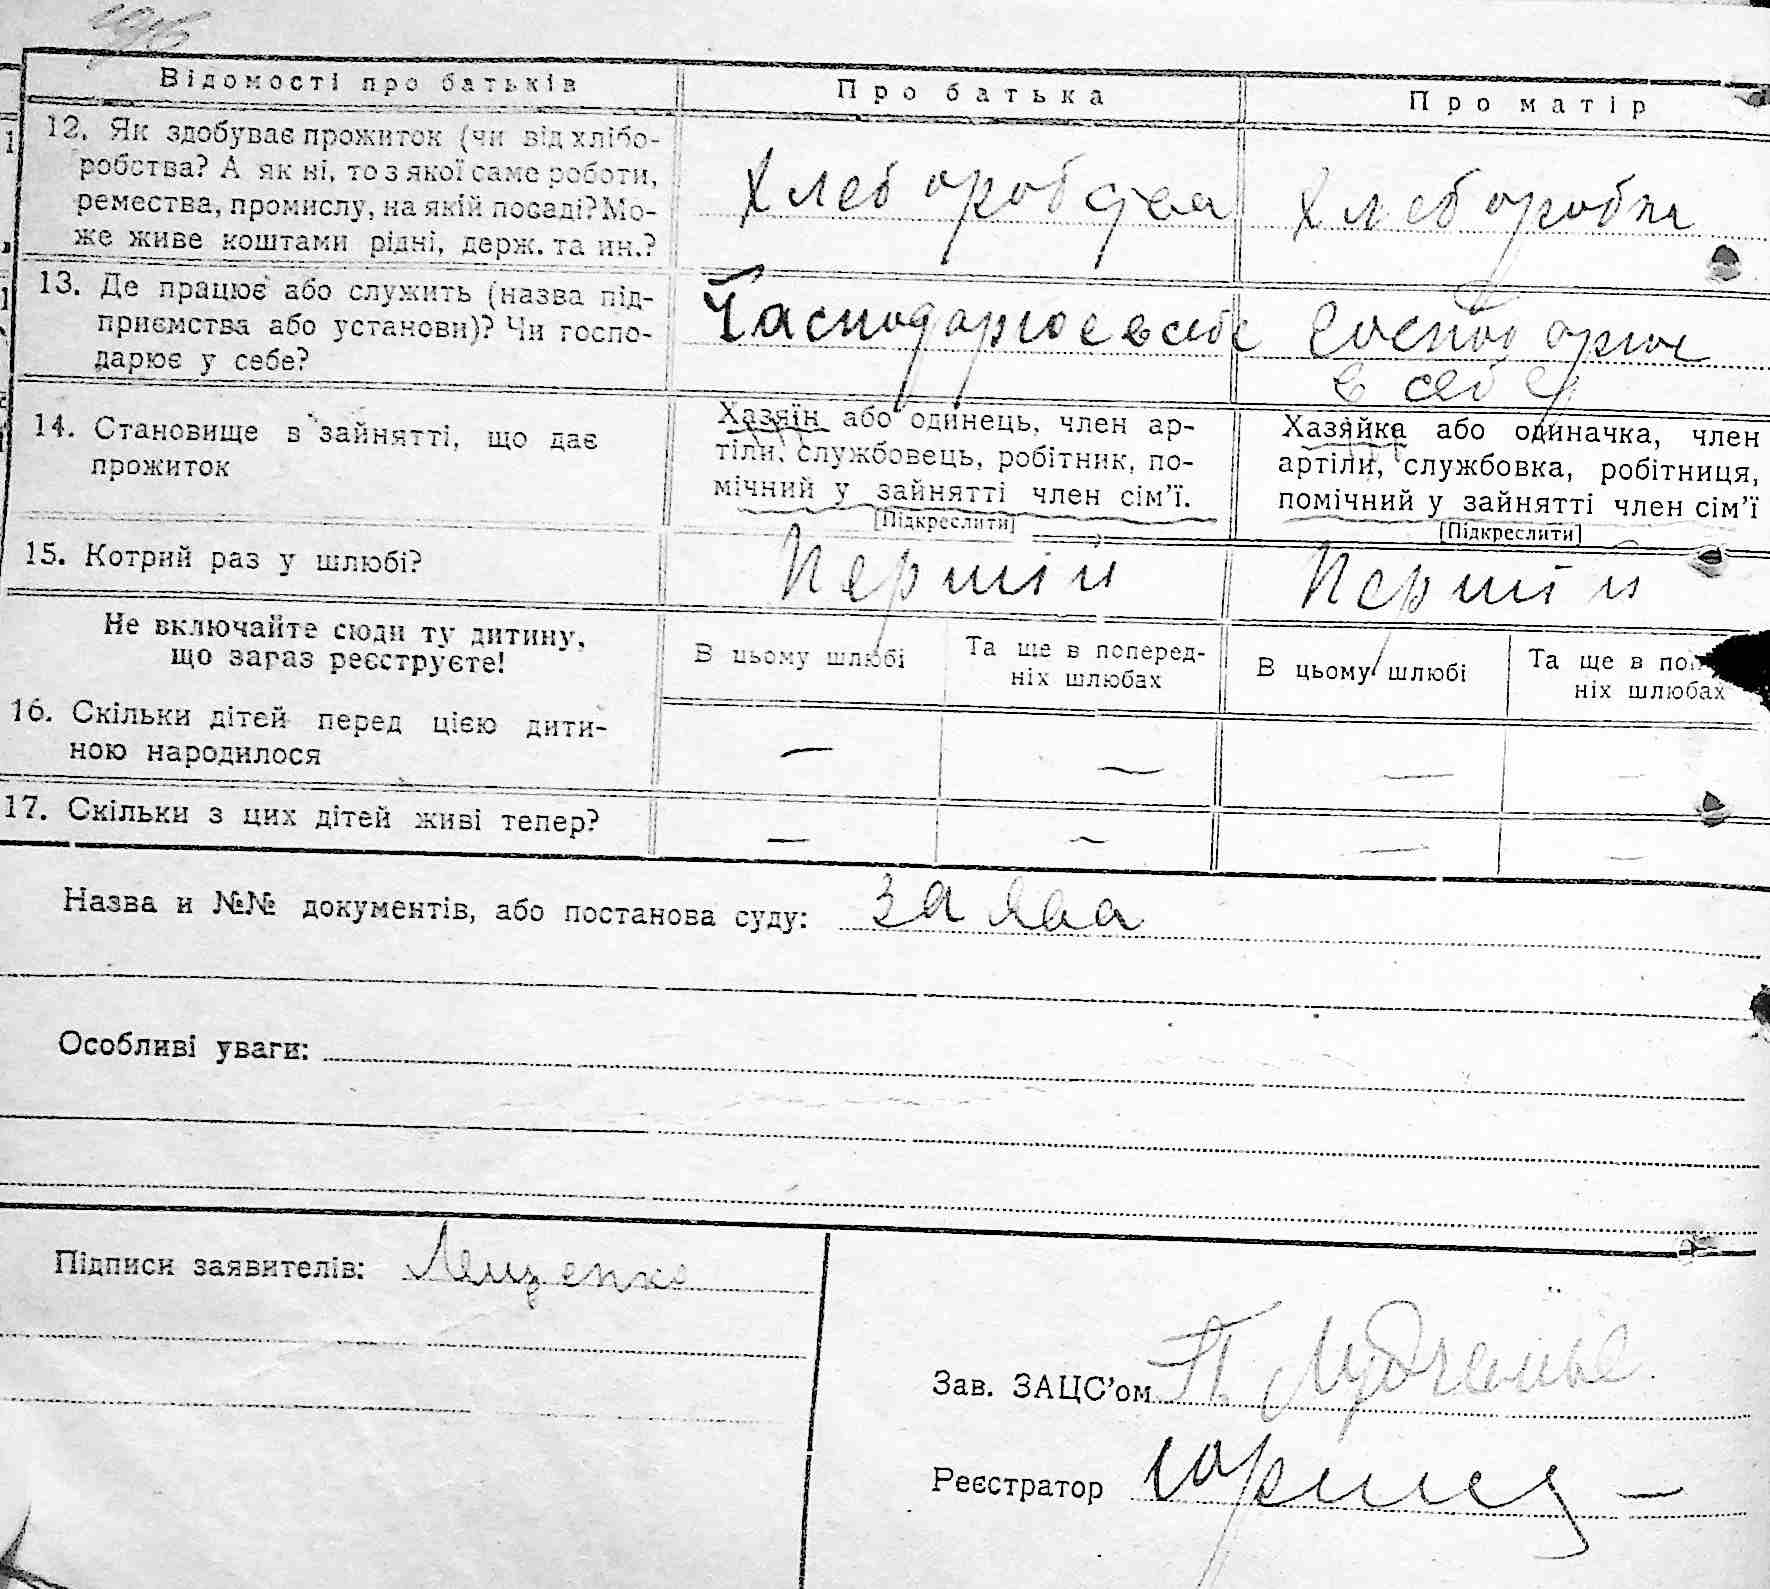 Відомості про батьків Про батька Про матір
12. Як здобуває прожиток (чи від хлібо-
робства? А як ні, то з якої саме роботи,
ремества, промислу, на якій посаді? Мо-
же живе коштами рідні, держ. та ин.?
Хлеборобства Хлеборобка
13. Де працює або служить (назва під-
приємства або установи)? Чи госпо-
дарює у себе?
Гасподарюе в себе Господарюе
в себе
14. Становище в зайнятті, що дає
прожиток
Хазяїн або одинець, член ар-
тіли, службовець, робітник, по-
мічний у зайнятті член сім’ї.
[Підкреслити]
Хазяйка або одиначка, член
артіли, службовка, робітниця,
помічний у зайнятті член сім’ї
[Підкреслити]
15. Котрий раз у шлюбі? Першій Першій
Не включайте сюди ту дитину,
що зараз реєструєте!
В цьому шлюбі Та ще в поперед-
ніх шлюбах
В цьому шлюбі Та ще в
ніх шлюбах
16. Скільки дітей перед цією дити-
ною народилося — — — —
17. Скільки з цих дітей живі тепер? — — — —
Назва и №№ документів, або постанова суду: заява
Особливі уваги:
Підписи заявителів: Лещенко
Зав. ЗАЦС’ом П.
Реєстратор